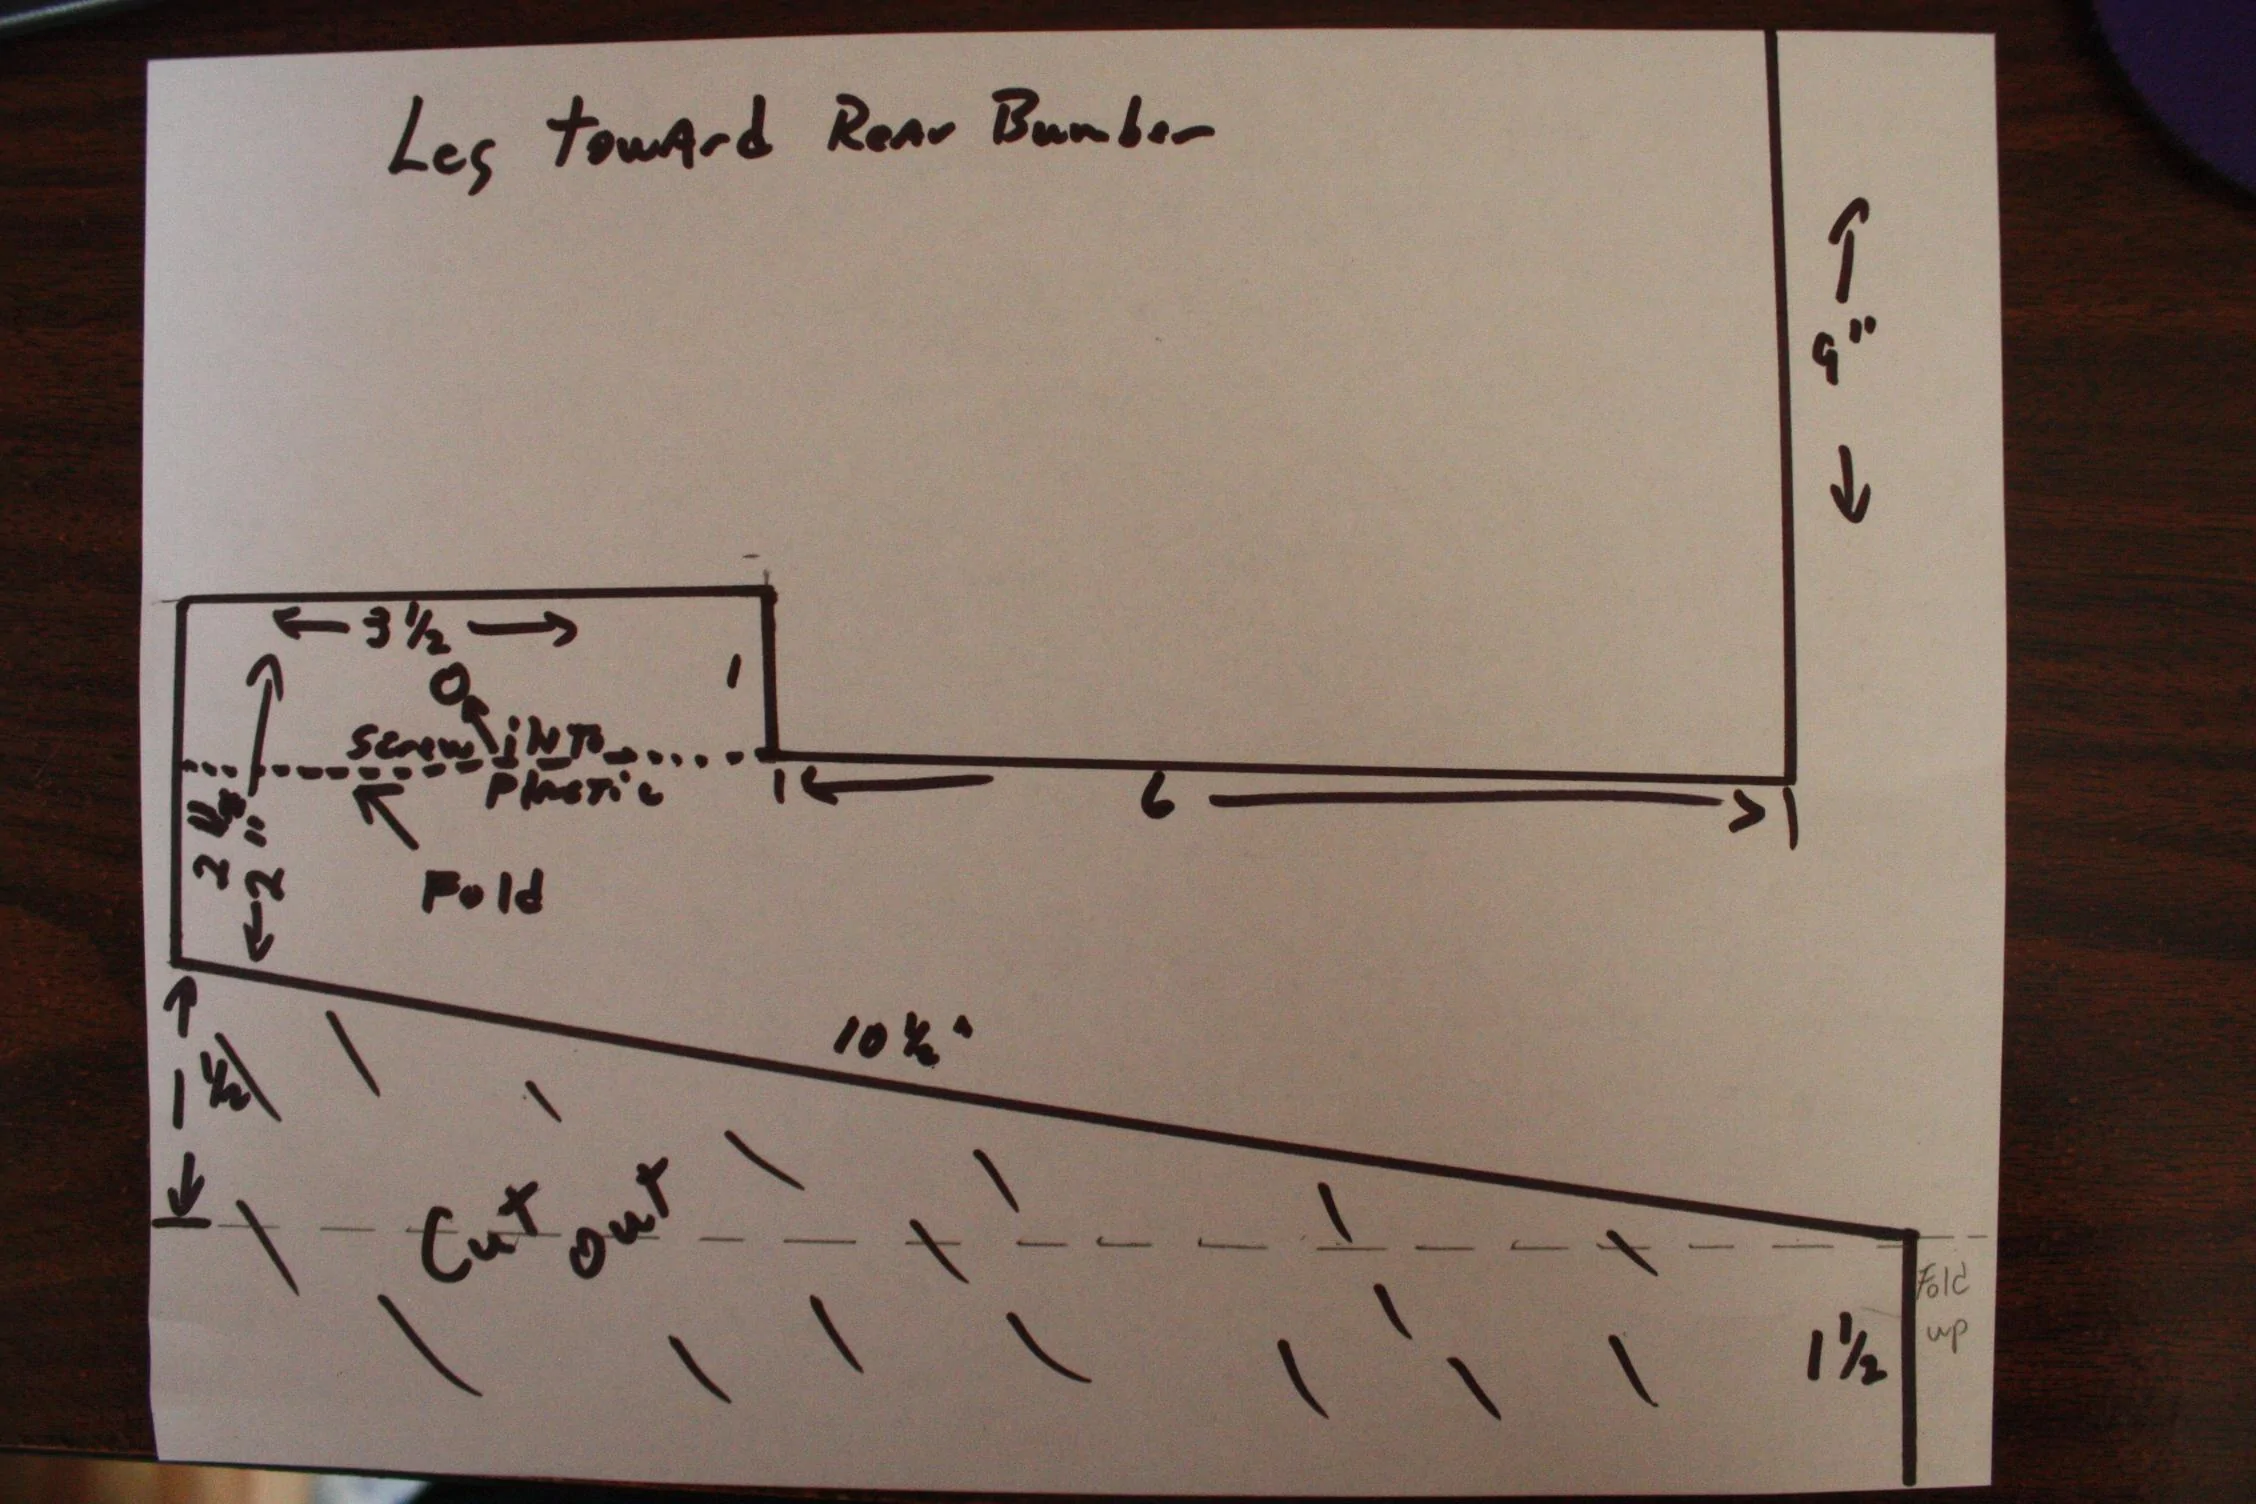 Leg toward Rear Bumber
9"
3 ½
1
screw into
Plastic
6
2"
Fold
10 ½"
1 ½
Cut out
Fold
up
1 ½